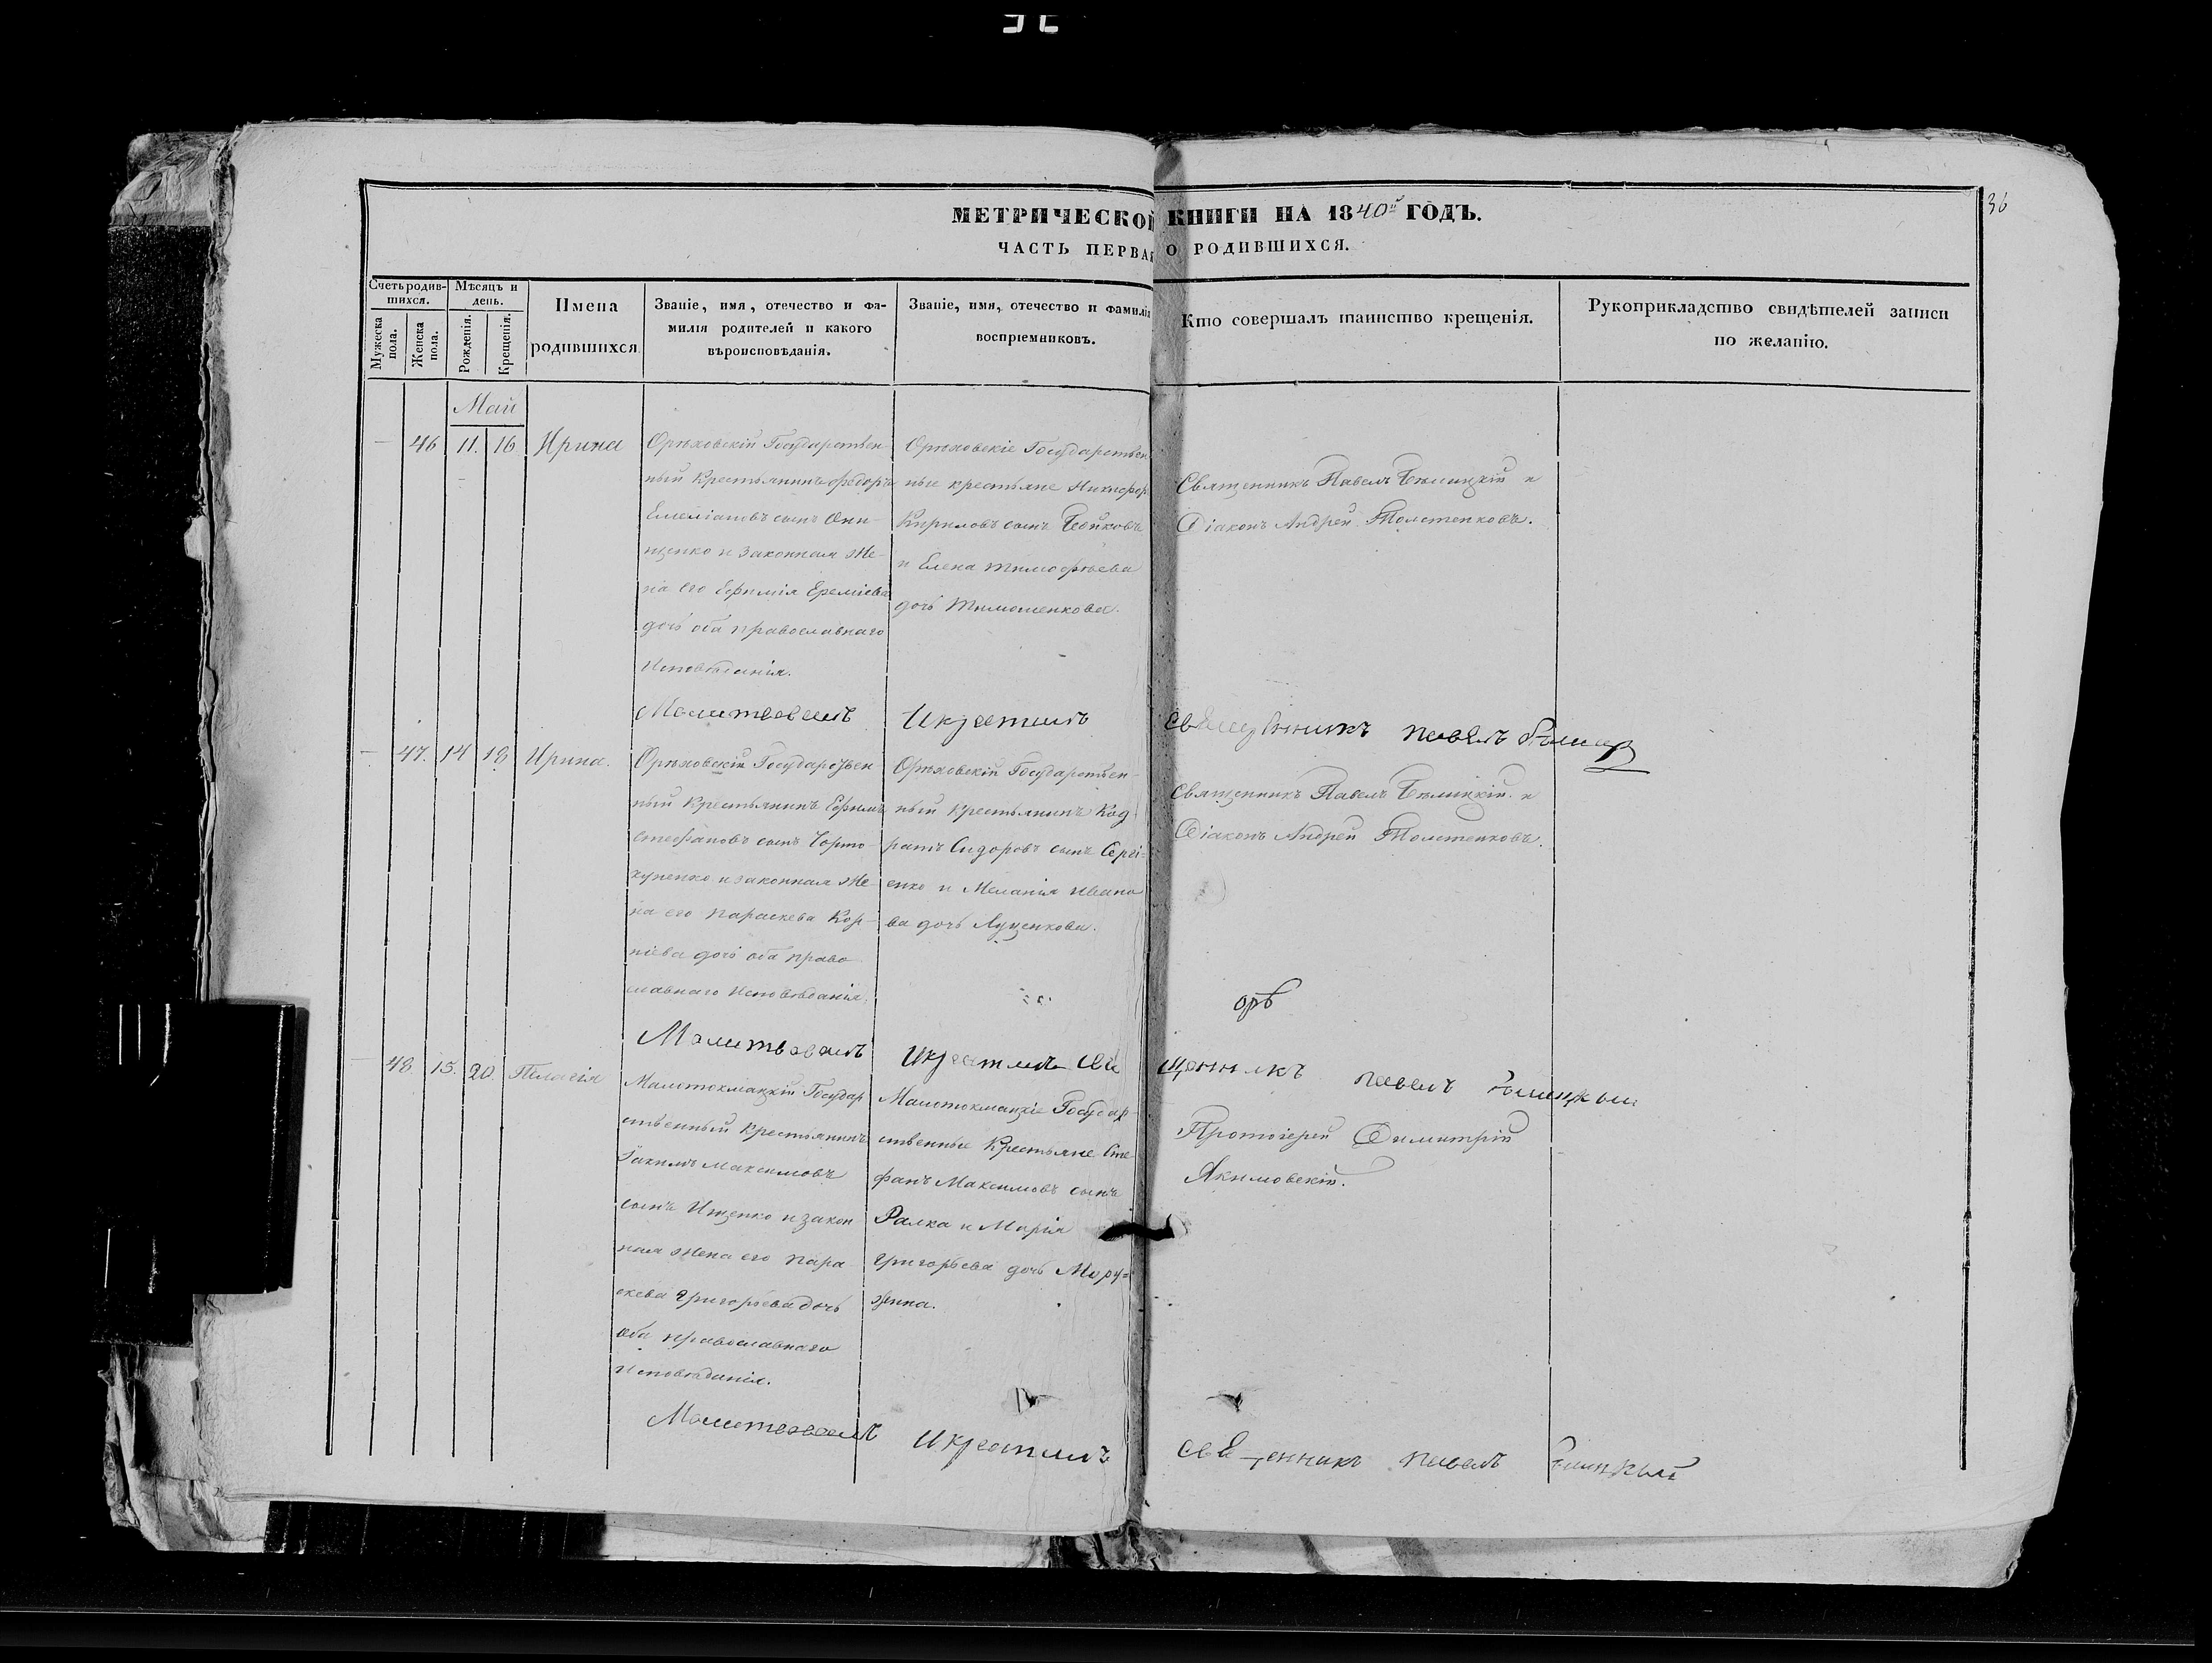 36
МЕТРИЧЕСКОЙ КНИГИ НА 1840й ГОДЪ.
ЧАСТЬ ПЕРВАЯ О РОДИВШИХСЯ.
Счетъ родив-
шихся.
Мужеска
пола.
Женска
пола.
Мѣсяцъ и
день.
Рожденія.
Крещенія.
Имена
родившихся
Званіе, имя, отечество и фа-
милія родителей и какого
вѣроисповѣданія.
Званіе, имя, отечество и фамилія
воспріемниковъ.
Кто совершалъ таинство крещенія.
Рукоприкладство свидѣтелей записи
по желанію.
Май
46 11. 16 Ирина
Орѣховскій Государствен
ный Крестьянинъ Феодоръ
Емеліановъ сынъ Они-
щенко и законная же-
на его Ефимія Ереміева
дочь оба православнаго
Исповѣданія.
Орѣховскіе Государствен
ные крестьяне Никифор
Кириловъ сынъ Бойковъ
и Елена Тимофѣева
дочь Тимошенкова.
Священникъ Павелъ Бѣлицкій и
Діаконъ Андрей Толстенковъ.
Молитвовалъ Икрестилъ священникъ павелъ
47. 14 18 Ирина.
Орѣховскій Государствен
ный Крестьянинъ Ефимъ
Стефановъ сынъ
и законная же-
на его Параскева Кор-
ніева дочь оба право
славнаго Исповѣданія.
Орѣховскій Государствен-
ный Крестьянинъ Код
ратъ Сидоровъ сынъ Сергі=
енко и Меланія Ивано
ва дочь Луценкова.
Священникъ Павелъ Бѣлицкій и
Діаконъ Андрей Толстенковъ.
Молитвовалъ Икрестилъ свя щенникъ павелъ
48. 15. 20. Пелагія
Малотокмацкій Государ
ственный Крестьянинъ
Іакимъ Максимовъ
сынъ Ищенко и закон
ная жена его Пара
скева Григорьева дочь
оба православнаго
Исповѣданія.
Малотокмацкіе Государ-
ственные Крестьяне Сте
фанъ Максимовъ сынъ
Ралка и Марія
Григорьева дочь
Протоіерей Димитрій
Акимовскій.
Молитвовалъ Икрестилъ священникъ павелъ